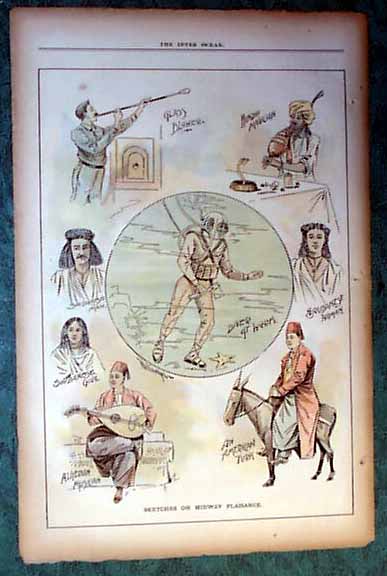 THE INTER OCEAN.
GLASS
BLOWER.
HINDU
MAGICIAN
DIVER
AT WORK
WOMAN
GIRL
ALGERIAN
MUSICIAN
AN
AMERICAN
TURK
SKETCHES ON MIDWAY PLAISANCE.